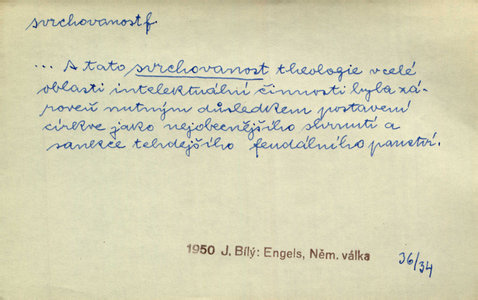 svrchovanost f.
... A tato svrchovanost theologie v celé
oblasti intelektuální činnosti byla zá-
roveň nutným důsledkem postavení
církve jako nejobecnějšího shrnutí a
sankce tehdejšího feudálního panství.
1950 J. Bílý: Engels, Něm. válka
36/34